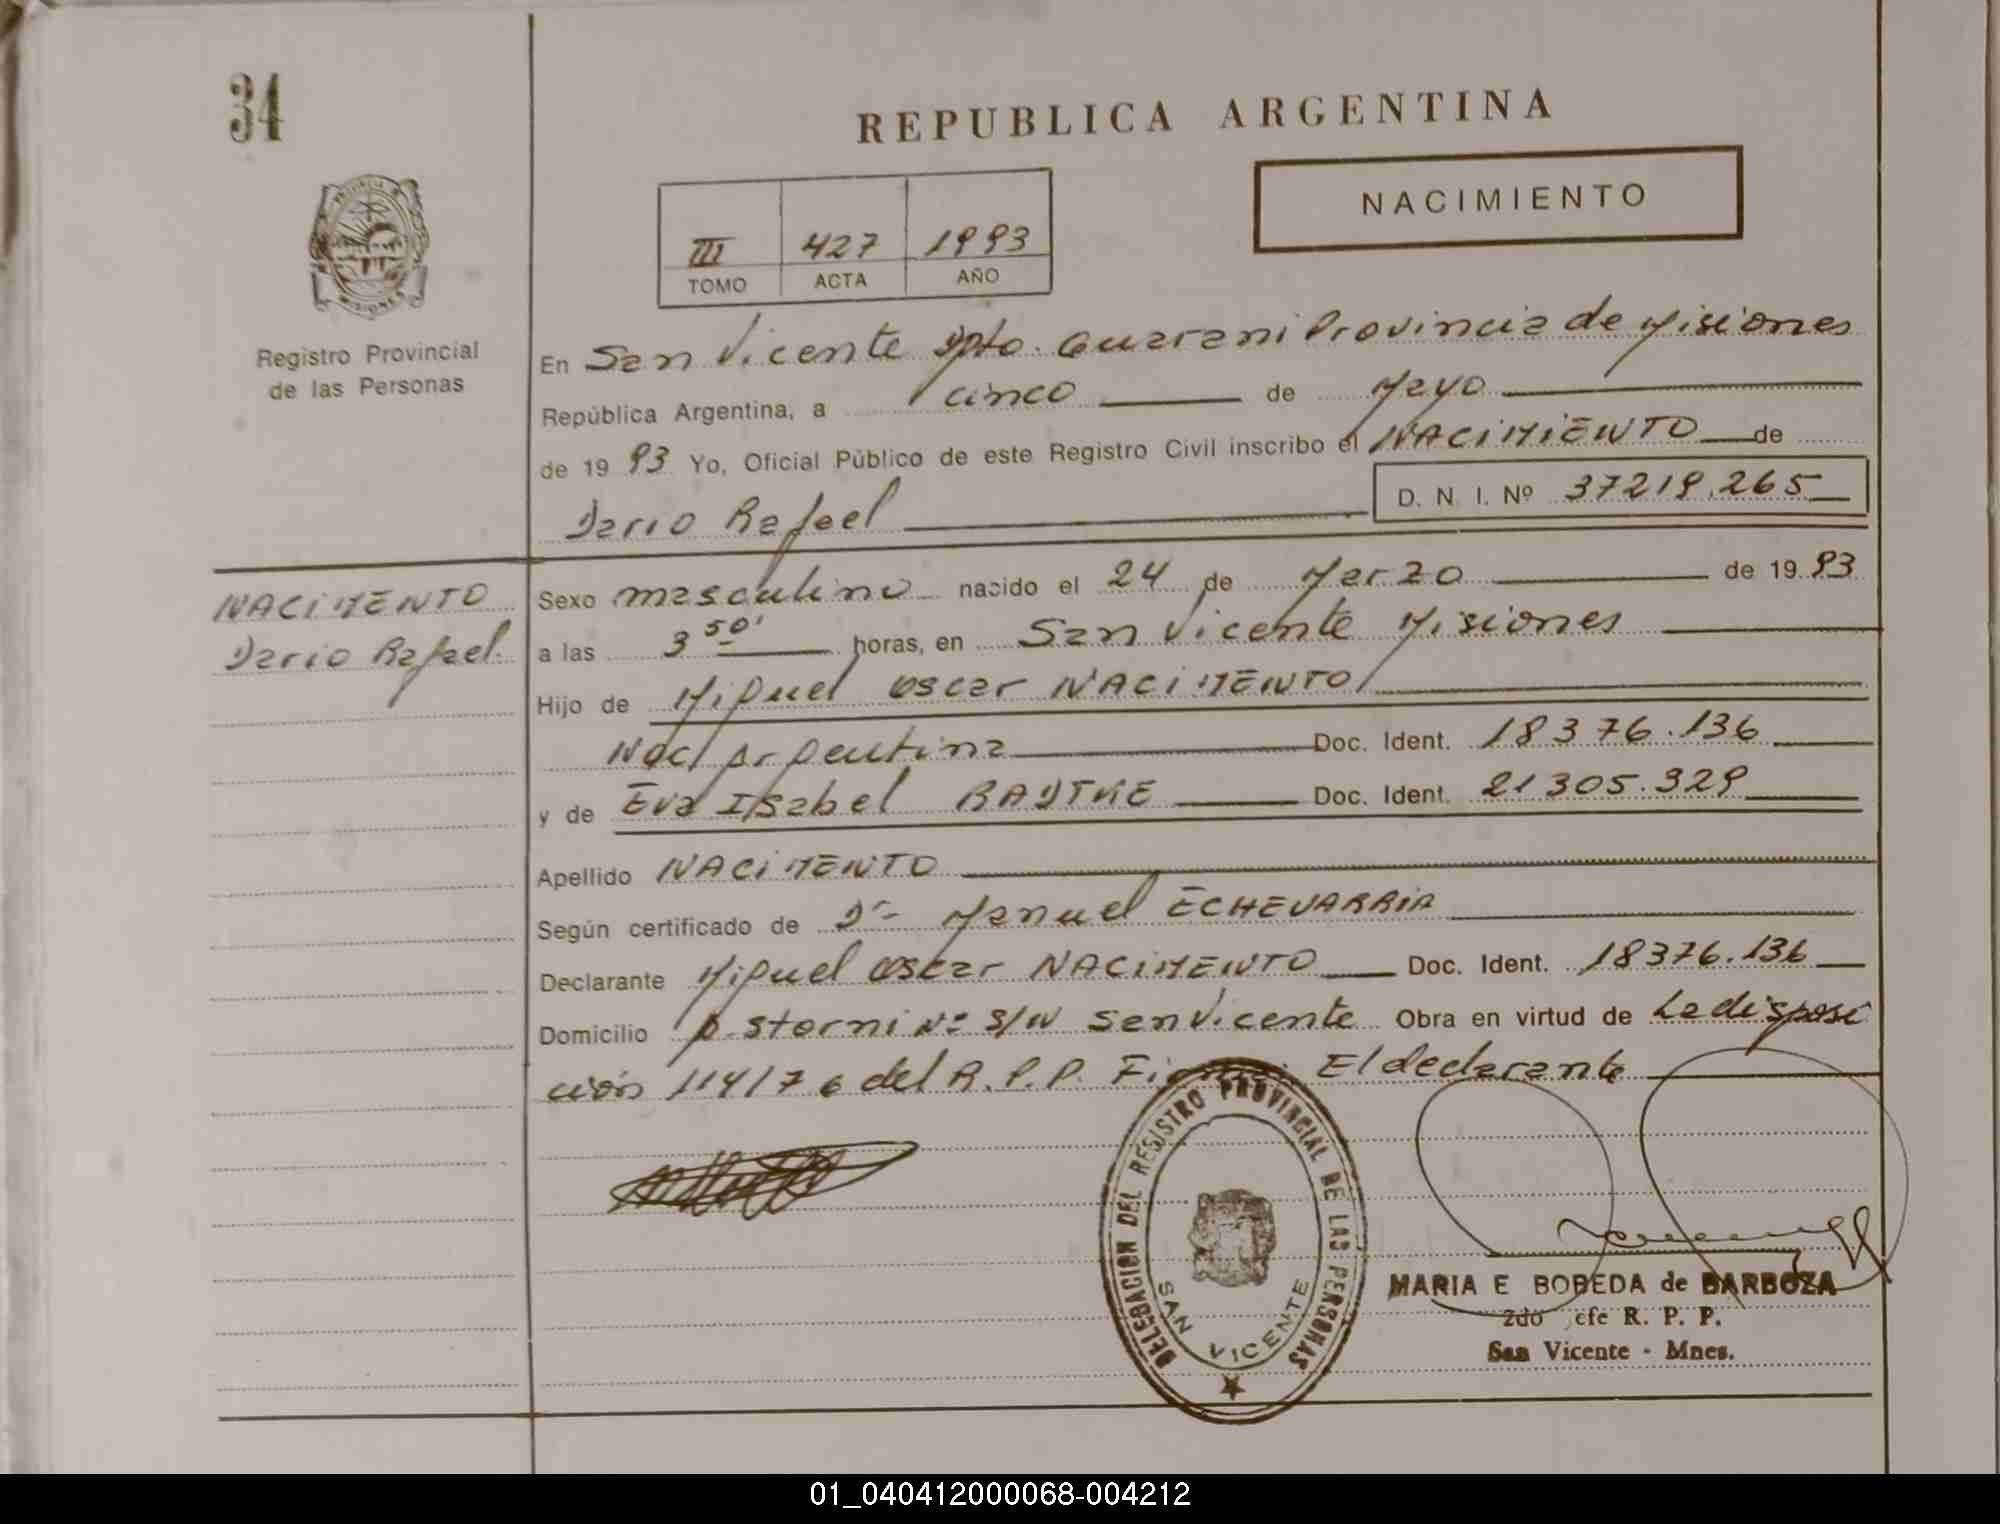 34
REPUBLICA ARGENTINA
NACIMIENTO
III 427 1993
TOMO ACTA AÑO
PROVINCIA DE MISIONES
Registro Provincial
de las Personas
En San Vicente Dpto. Guarani Provincia de Misiones
República Argentina, a cinco de Mayo
de 1993 Yo, Oficial Público de este Registro Civil inscribo el NACIMIENTO de
Dario Rafael D. N. I. Nº 37219.265
NACIMENTO
Dario Rafael.
Sexo masculino nacido el 24 de Marzo de 1993
a las 3 50' horas, en San Vicente Misiones
Hijo de Miguel Oscar NACIMENTO
Nac/ Argentina Doc. Ident. 18376.136
y de Eva Isabel RADTKE Doc. Ident. 21305.329
Apellido NACIMENTO
Según certificado de Dr- Manuel ECHEVARRIA
Declarante Miguel Oscar NACIMENTO Doc. Ident. 18376.136
Domicilio A. Storni Nº S/N San Vicente Obra en virtud de La disposi
ción 114/76 del R.P.P. Firma: El declarante
DELEGACION DEL REGISTRO PROVINCIAL DE LAS PERSONAS
SAN VICENTE
MARIA E BOBEDA de BARBOZA
2do efe R. P. P.
San Vicente - Mnes.
01_040412000068-004212